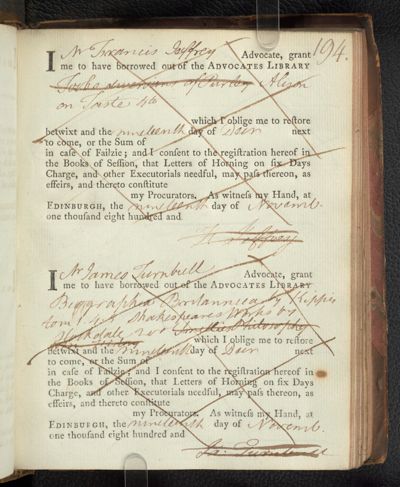 194.
I Mr Francis Jeffrey Advocate, grant
me to have borrowed out of the ADVOCATES LIBRARY
Tooke's diversions of Purley Alison
on Taste 4to
which I oblige me to restore
betwixt and the nineteenth day of Decr next
to come, or the Sum of
in case of Failzie; and I consent to the registration hereof in
the Books of Session, that Letters of Horning on six Days
Charge, and other Executorials needful, may pass thereon, as
effeirs, and thereto constitute
my Procurators. As witness my Hand, at
EDINBURGH, the nineteenth day of Novemb.
one thousand eight hundred and
F. Jeffrey
I Mr James Turnbull Advocate, grant
me to have borrowed out of the ADVOCATES LIBRARY
Biographia Britannica by Kippis
tom Shakespeares Works by
Philosophy
which I oblige me to restore
betwixt and the nineteenth day of Decr next
to come, or the Sum of
in case of Failzie; and I consent to the registration hereof in
the Books of Session, that Letters of Horning on six Days
Charge, and other Executorials needful, may pass thereon, as
effeirs, and thereto constitute
my Procurators. As witness my Hand, at
EDINBURGH, the nineteenth day of Novemb.
one thousand eight hundred and
Ja: Turnbull